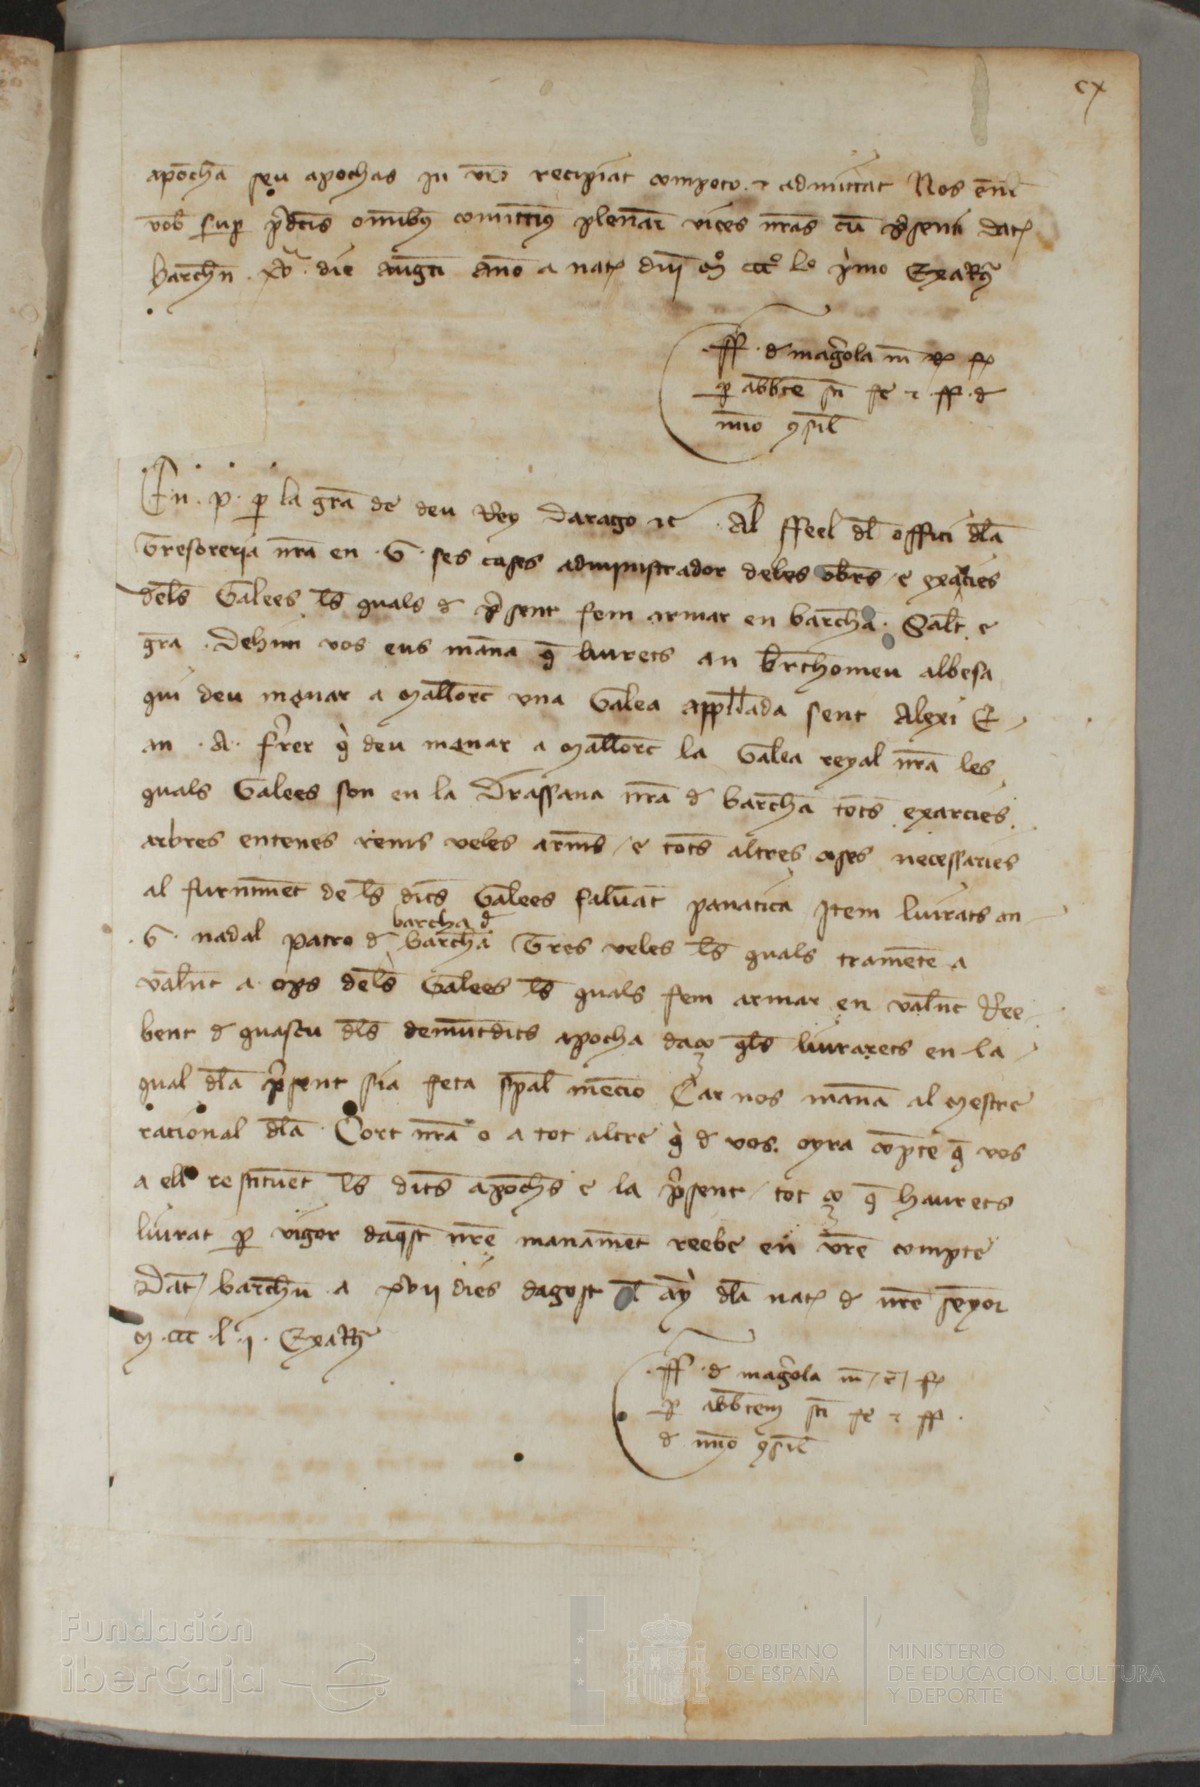 cx
apocha seu apochas in vro recipiat compoto et admittat Nos eni
vob sup pdcis omibus comittims plenari vices nras cu psenti dat
barchn xv die augti Ano a nat dni mo ccco lo primo Exa R
ff d magola m
p abbte sti fe et ff d
mio consil
En p p la gra de deu Rey darago etc Al ffeel dl offici dla
Tresoreria nra en G ses cases administrador deles obres e exarcies
dels Galees ls quals d psent fem armar en barchа Salt e
gra Dehim vos eus mana q liurets an brthomeu albesa
qui deu menar a mallorc una Galea appllada sent Alexi E
an A frer q deu menar a mallorc la Galea reyal nra les
quals Galees son en la Drassana nra d barcha tots exarcies
arbres entenes rems veles arms e tots altres coses necessaries
al furniment de ls dits Galees saluant panatica Item liurats an
barcha d
G nadal patro d barcha Tres veles ls quals trametem a
valenc a ops dels Galees ls quals fem armar en valenc Ree
bent d quascu dls demutdits apocha daço qls liurarets en la
qual dla psent sia feta spal mencio Car nos mana al mestre
racional dla Cort nra o a tot altre q d vos oyra compte q vos
a ell restituent ls dits apochs e la psent tot ço q haurets
liurat p vigor daqst nre manament reebe en vre compte
Dat barchn a xvii dies dagost l any dla nat d nre senyor
m ccc l i Exa R
ff d magola m
p abbtem sti fe et ff
d mio consil
Fundación
iberCaja
GOBIERNO
DE ESPAÑA
MINISTERIO
DE EDUCACIÓN, CULTURA
Y DEPORTE